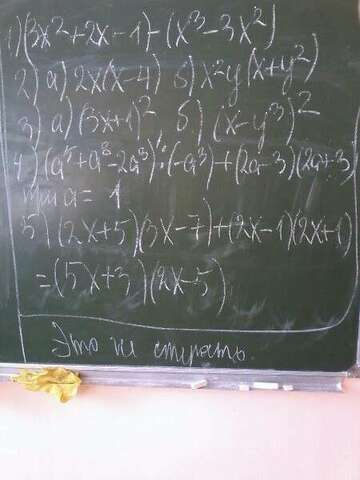 1) (3x²+2x-1)-(x³-3x²)
2) а) 2x(x-4) б) x²y(x+y²)
3) а) (3x+1)² б) (x-y³)²
4) (a⁵+a⁸-2a³):(-a³)+(2a-3)(2a+3)
при a=1
5) (2x+5)(3x-7)+(2x-1)(2x+1)
=(5x+3)(2x-5)
Это не стирать.